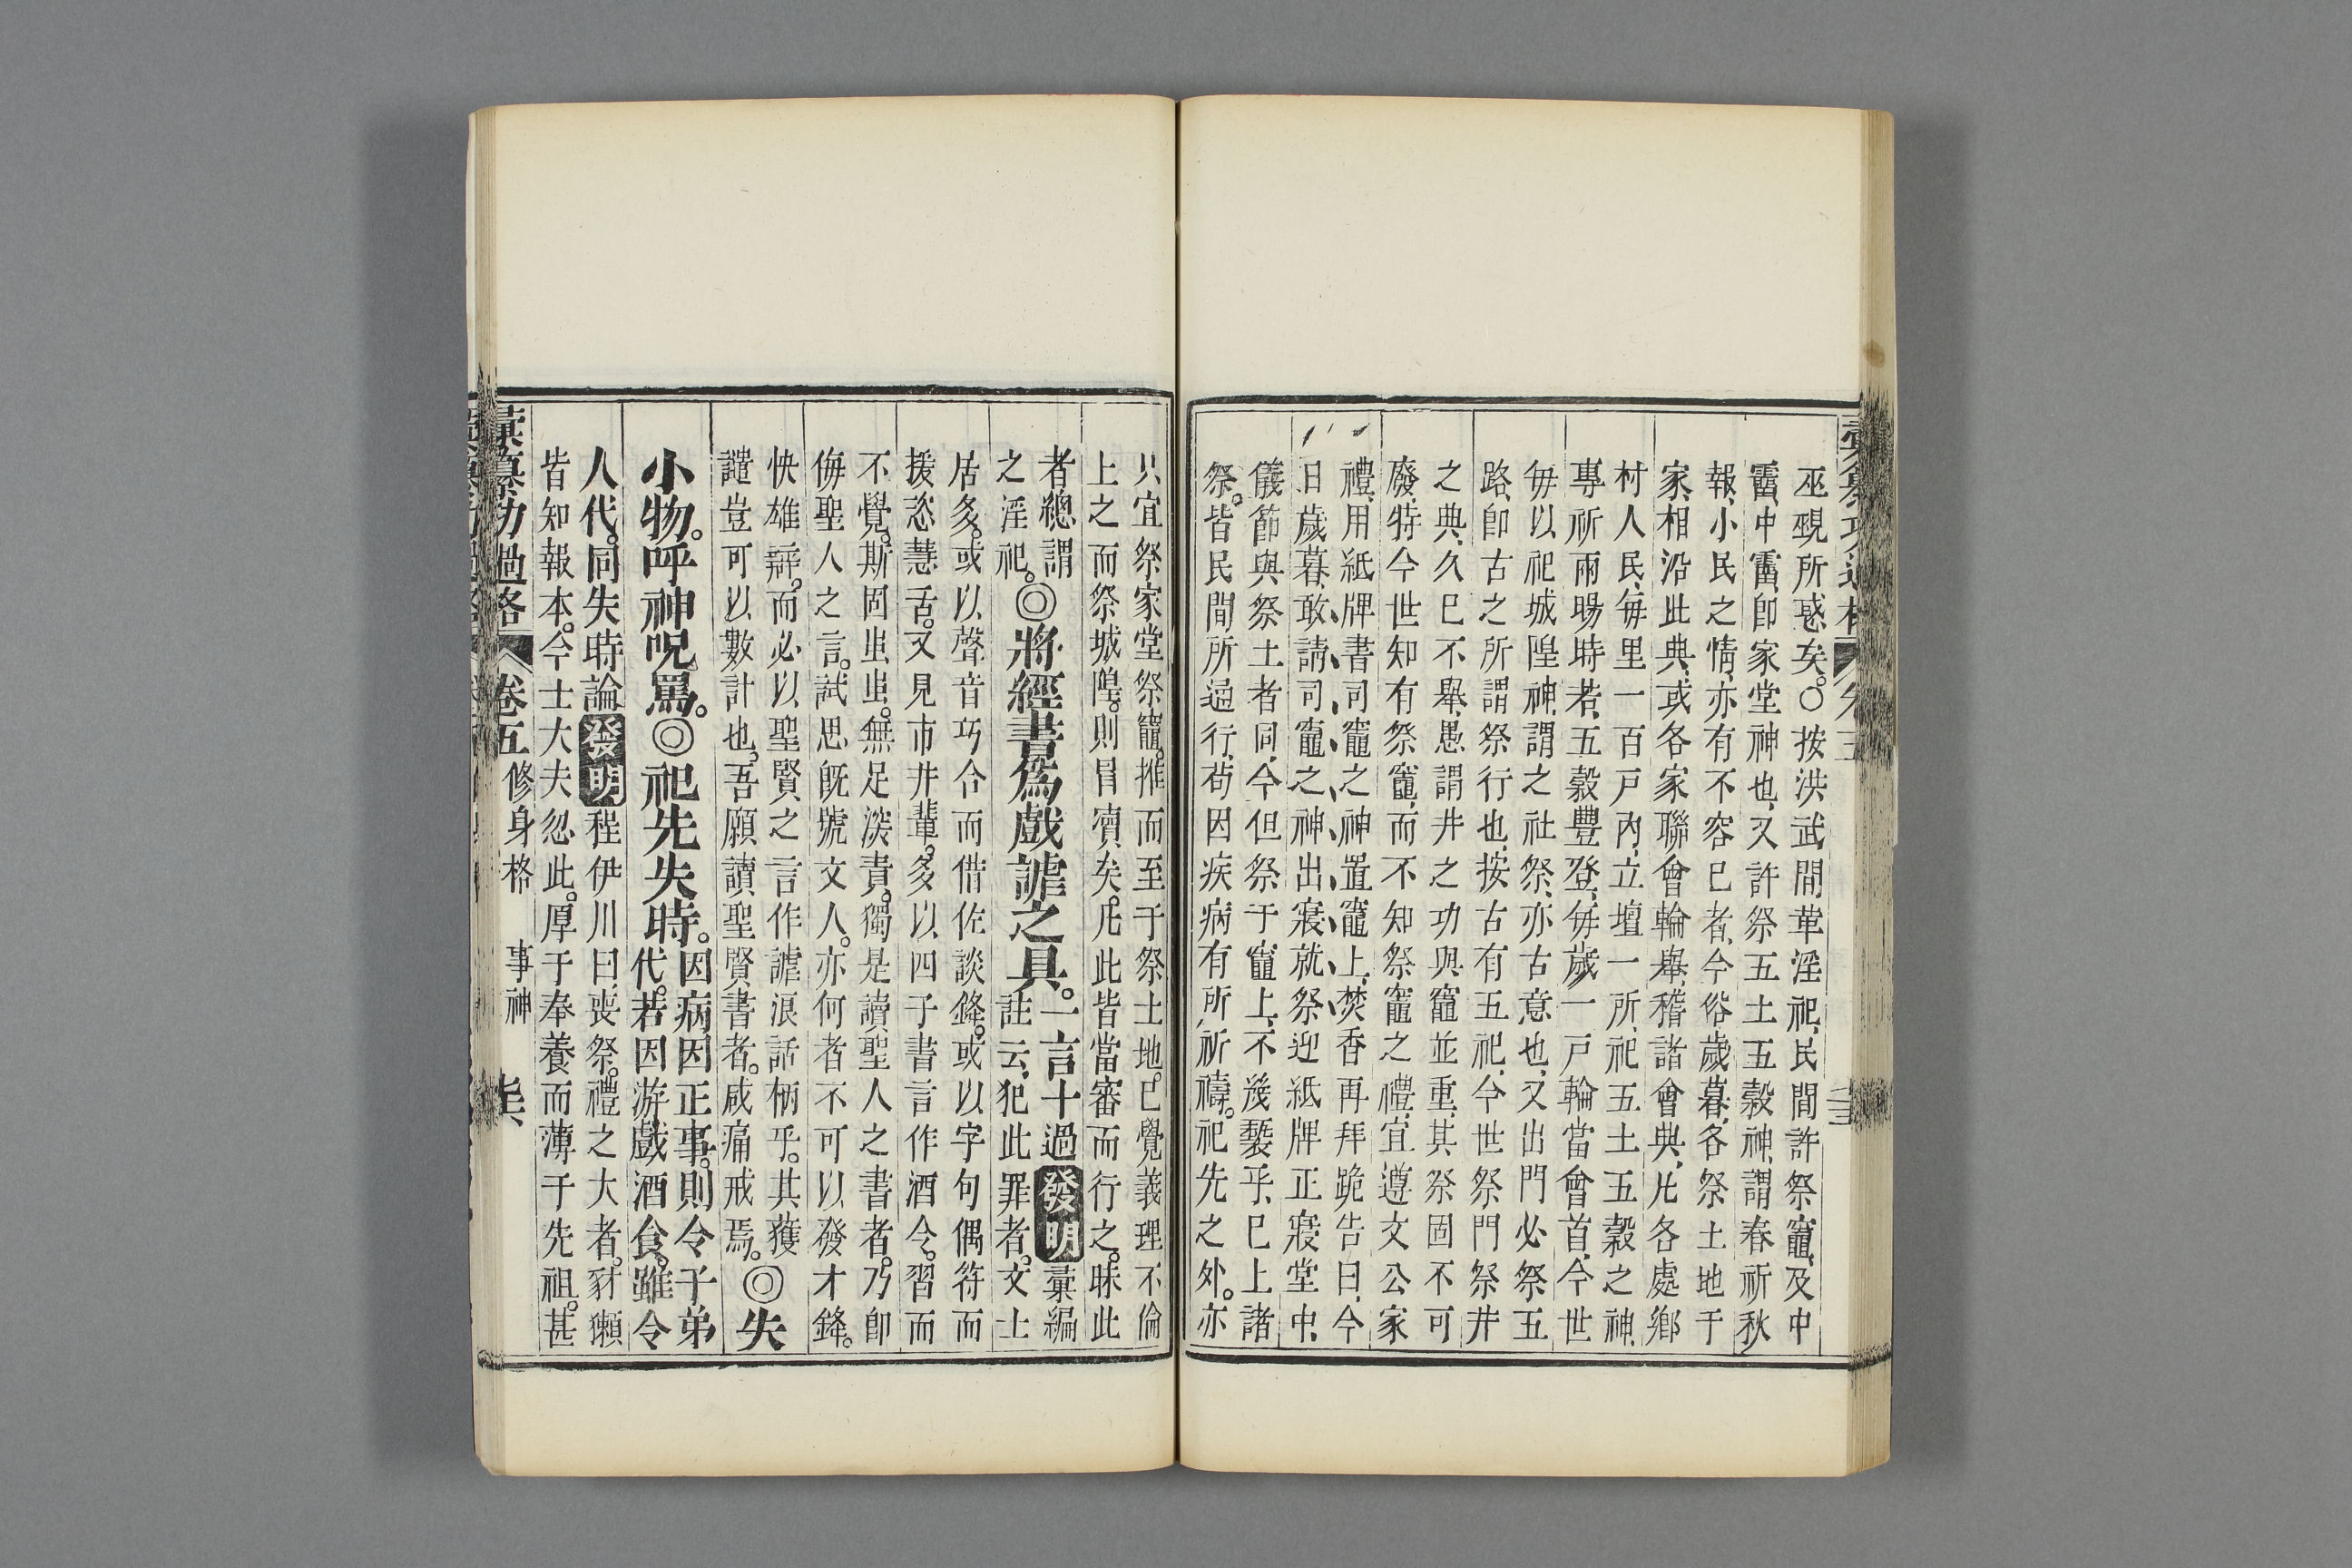 巫覡所惑矣。○按洪武間革淫祀、民間許祭竈、及中
霤、中霤、卽家堂神也、又許祭五土五穀神、謂春祈秋
報、小民之情、亦有不容已者、今俗歲暮、各祭土地于
家、相沿此典、或各家聯會輪舉、稽諸會典、凡各處鄉
村人民、每里一百戶內、立壇一所、祀五土五穀之神、
專祈雨暘時若、五穀豐登、每歲一戶輪當會首、今世
每以祀城隍神、謂之社祭、亦古意也、又出門必祭五
路、卽古之所謂祭行也、按古有五祀、今世祭門祭井
之典、久已不舉、愚謂井之功與竈並重、其祭固不可
廢、特今世知有祭竈、而不知祭竈之禮、宜遵文公家
禮、用紙牌書司竈之神、置竈上、焚香再拜跪告曰、今
日歲暮、敢請司竈之神出寢就祭、迎紙牌正寢堂中、
儀節與祭土者同、今但祭于竈上、不幾褻乎、已上諸
祭。皆民間所通行、苟因疾病有所祈禱。祀先之外。亦
只宜祭家堂祭竈。推而至于祭土地。已覺義理不倫
上之而祭城隍。則冒瀆矣。凡此皆當審而行之。昧此
者總謂
之淫祀。◎將經書爲戲謔之具。一言十過
註云、犯此罪者。文士
發明彙編
居多。或以聲音巧合而借佐談鋒。或以字句偶符而
援恣慧舌。又見市井輩。多以四子書言作酒令。習而
不覺。斯固蚩蚩。無足深責。獨是讀聖人之書者。乃卽
侮聖人之言。試思旣號文人。亦何者不可以發才鋒。
快雄辯。而必以聖賢之言作謔浪話柄乎。其獲
譴豈可以數計也。吾願讀聖賢書者。咸痛戒焉。◎失
小物。呼神呪罵。◎祀先失時。因病因正事。則令子弟
代。若因游戲酒食。雖令
人代。同失時論發明程伊川曰、喪祭。禮之大者。豺獺
皆知報本。今士大夫忽此。厚于奉養而薄于先祖。甚
彙纂功過格 卷五 修身格 事神